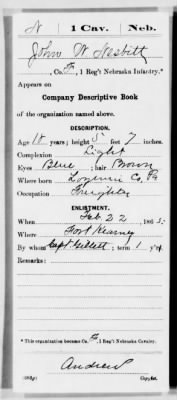 N | 1 Cav. | Neb.
John W Nesbitt
, Co. F, 1 Reg't Nebraska Infantry.*
Appears on
Company Descriptive Book
of the organization named above.
DESCRIPTION.
Age 18 years; height 5 feet 7 inches.
Complexion Light
Eyes Blue; hair Brown
Where born Co, Pa
Occupation Freighter
ENLISTMENT.
When Feb. 22, 186
Where Fort Kearney
By whom Capt Gillett; term 1 y'rs.
Remarks:
*This organization became Co. F, 1 Reg't Nebraska Cavalry.
Andrews
Copyist.